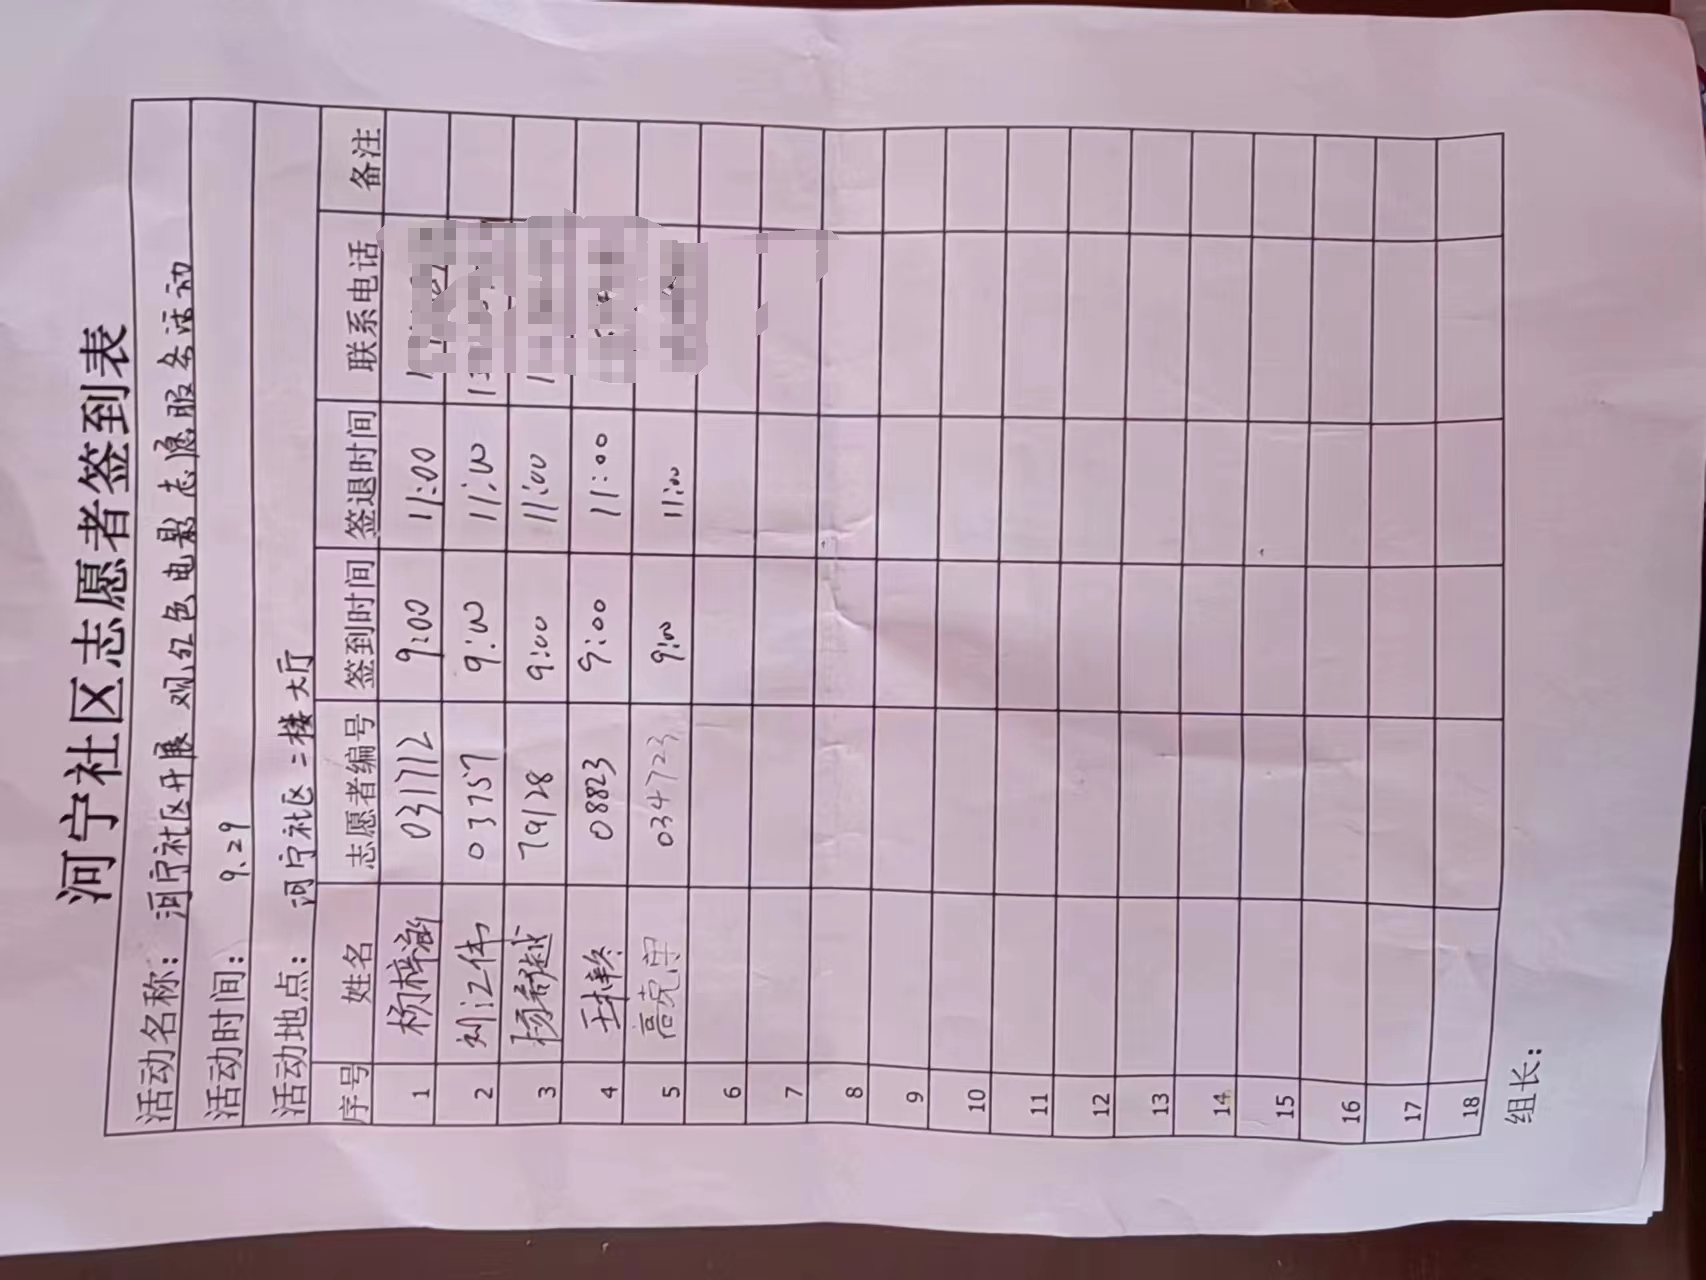 河宁社区志愿者签到表
活动名称：河宁社区开展观红色电影志愿服务活动
活动时间：9.29
活动地点：河宁社区二楼大厅
序号 姓名 志愿者编号 签到时间 签退时间 联系电话 备注
1 杨梓涵 031712 9:00 11:00
2 刘江伟 03757 9:00 11:00
3 杨 越 79128 9:00 11:00
4 王 08823 9:00 11:00
5 高克军 034723 9:00 11:00
6
7
8
9
10
11
12
13
14
15
16
17
18
组长：